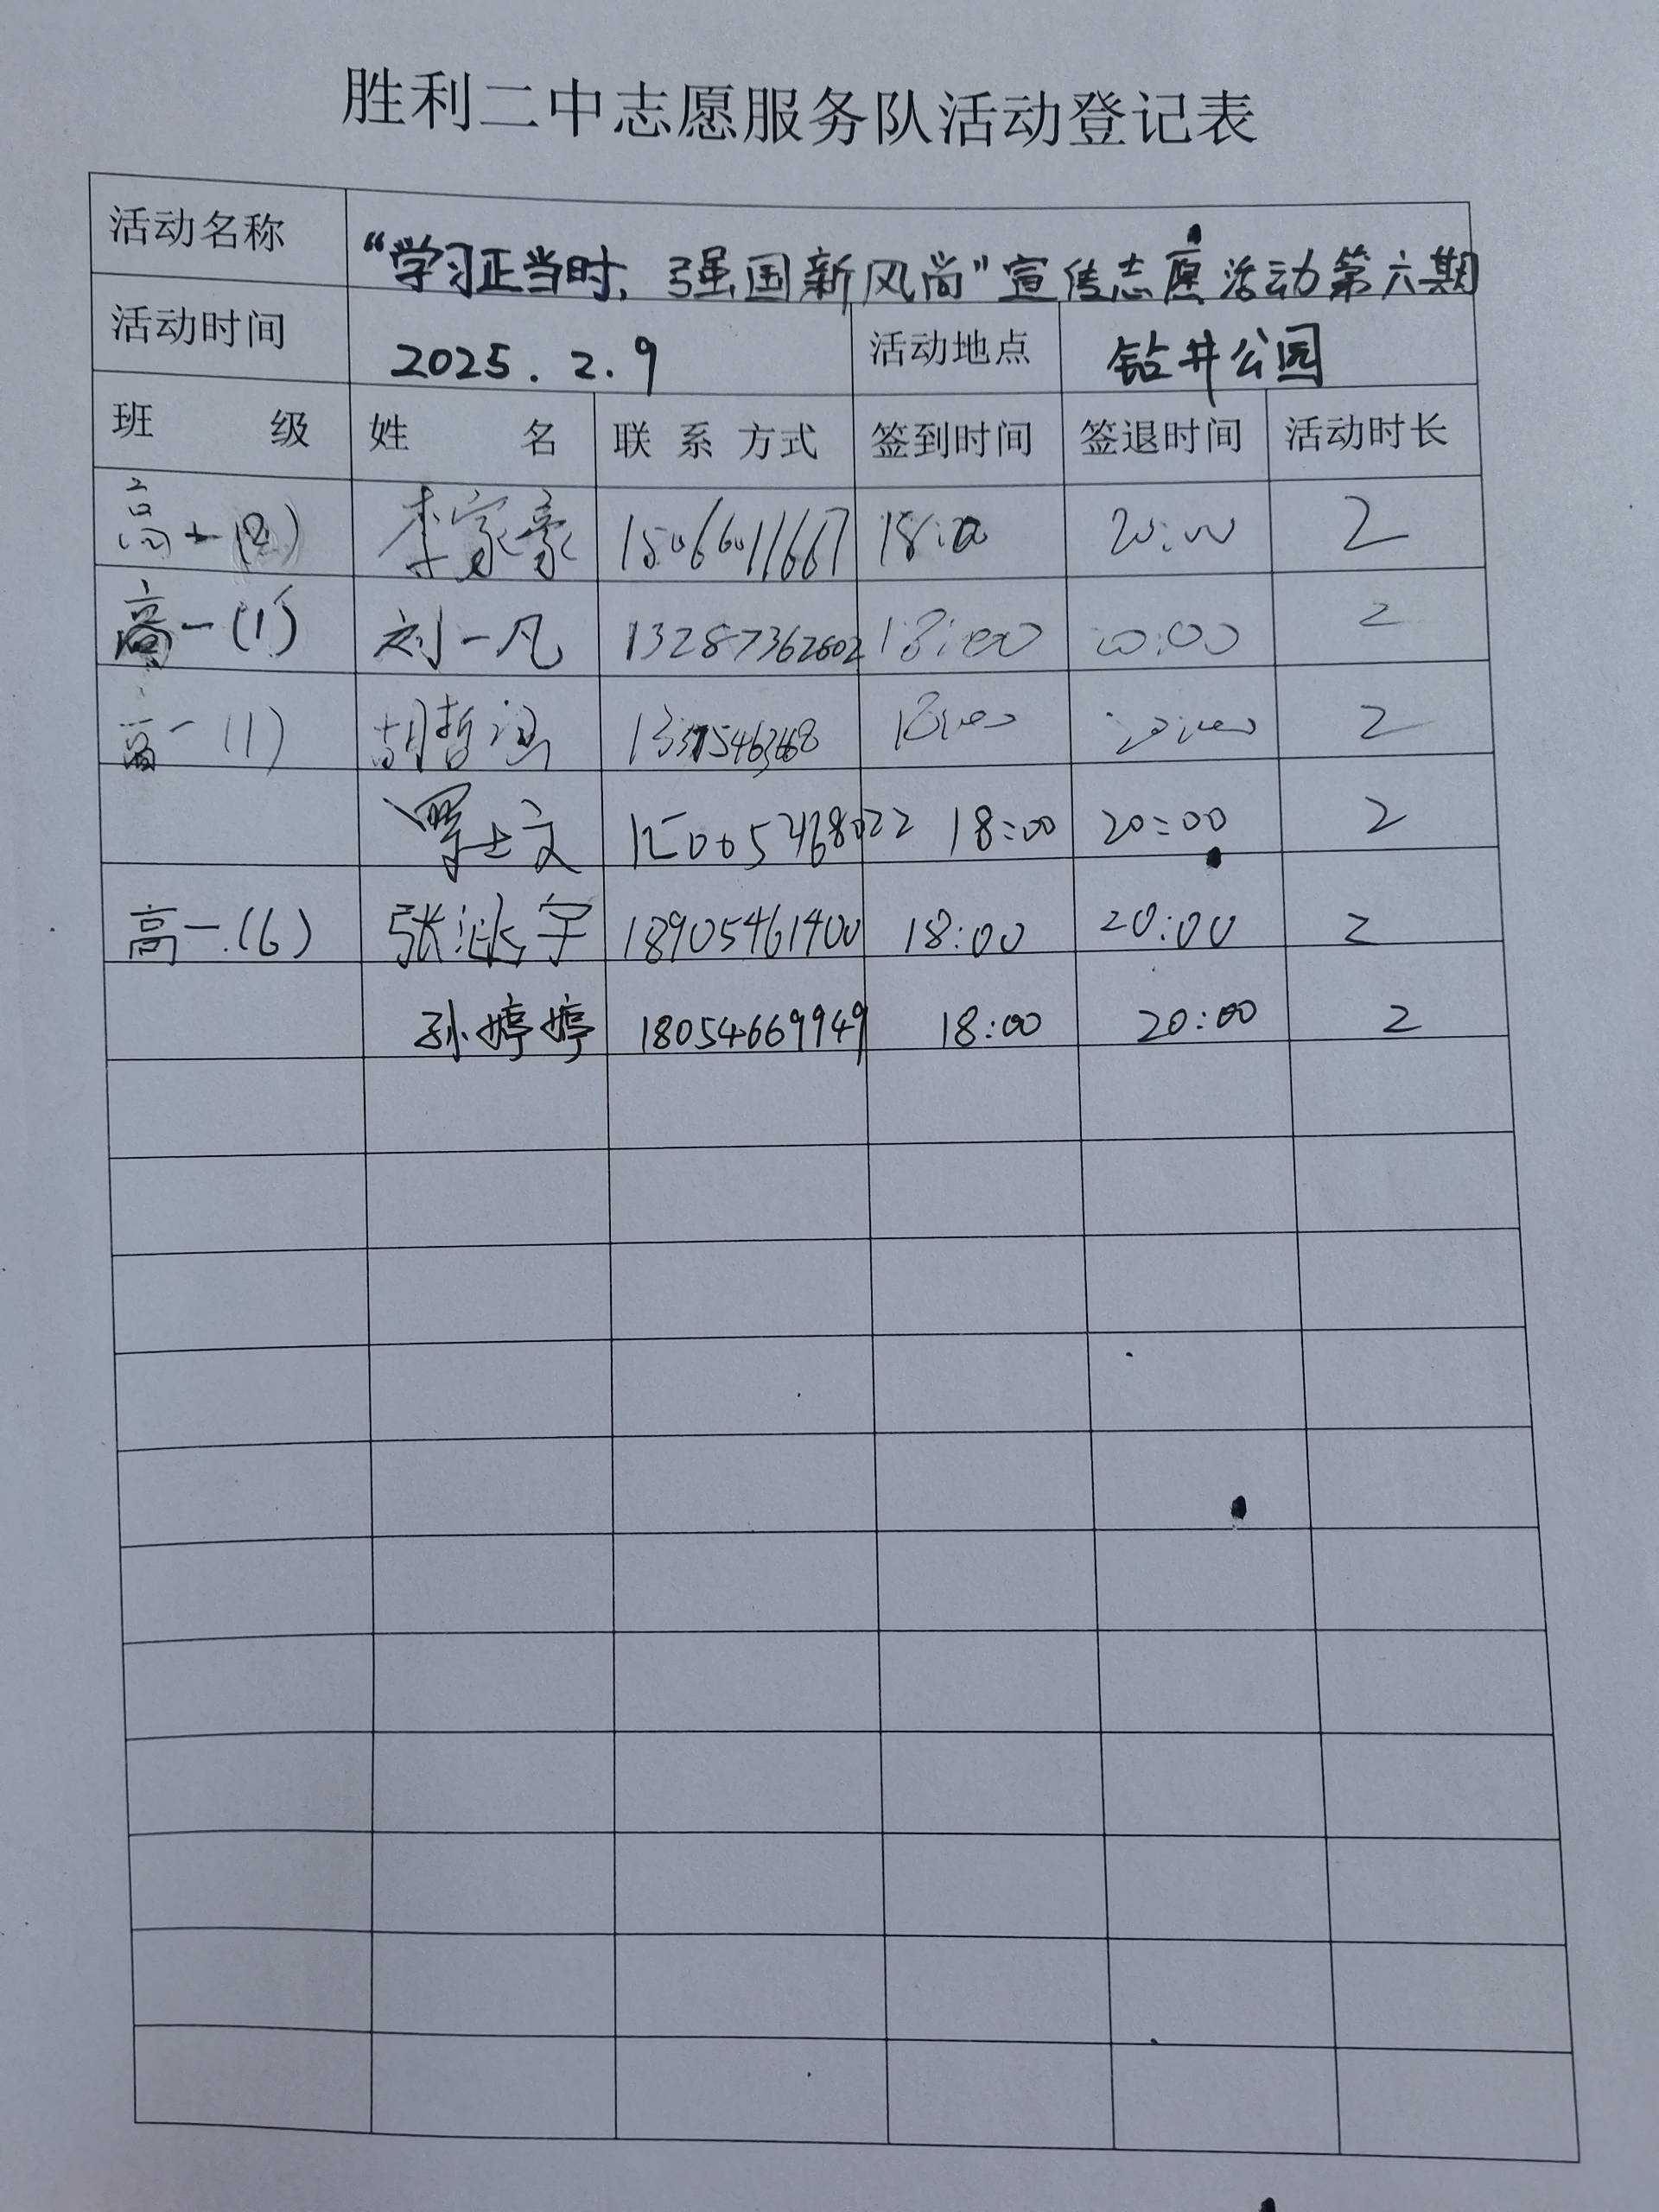 胜利二中志愿服务队活动登记表
活动名称 “学习正当时，强国新风尚”宣传志愿活动第六期
活动时间 2025.2.9 活动地点 钻井公园
班级 姓名 联系方式 签到时间 签退时间 活动时长
李家豪 15066011667 18:00 20:00 2
高一(1) 刘一凡 13287362602 18:00 20:00 2
高一(1) 胡哲涵 18:00 20:00 2
文 18:00 20:00 2
高一(6) 张 宇 18905461400 18:00 20:00 2
孙婷婷 18054669949 18:00 20:00 2